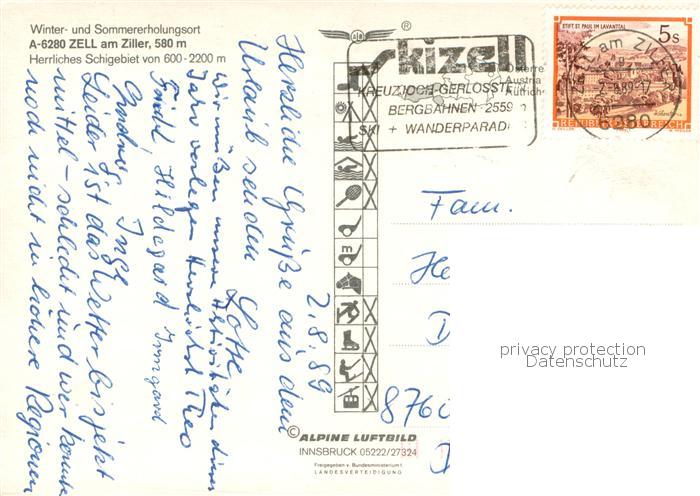 Winter- und Sommererholungsort
A-6280 ZELL am Ziller, 580 m
Herrliches Schigebiet von 600-2200 m
®
skizell
KREUZJOCH-GERLOSSTE
BERGBAHNEN 2559
SKI + WANDERPARADI
Österre
Austria
Autrich
STIFT ST. PAUL IM LAVANTTAL
5s
REPUBLIK ÖSTERREICH
6280
2.8.89
Herzliche Grüße aus dem
Urlaub senden Lotte
Wir müßen unsere Aktivitäten dieses
Jahr verlegen Herzlichst Theo
Friedl Hildegard Irmgard
Inge
Leider ist das Wetter bis jetzt
mittel-schlecht und wir konnten
noch nicht in höhere Regionen
Fam.
He
D
8760
D
privacy protection
Datenschutz
© ALPINE LUFTBILD
INNSBRUCK 05222/27324
Freigegeben v. Bundesministerium f.
LANDESVERTEIDIGUNG